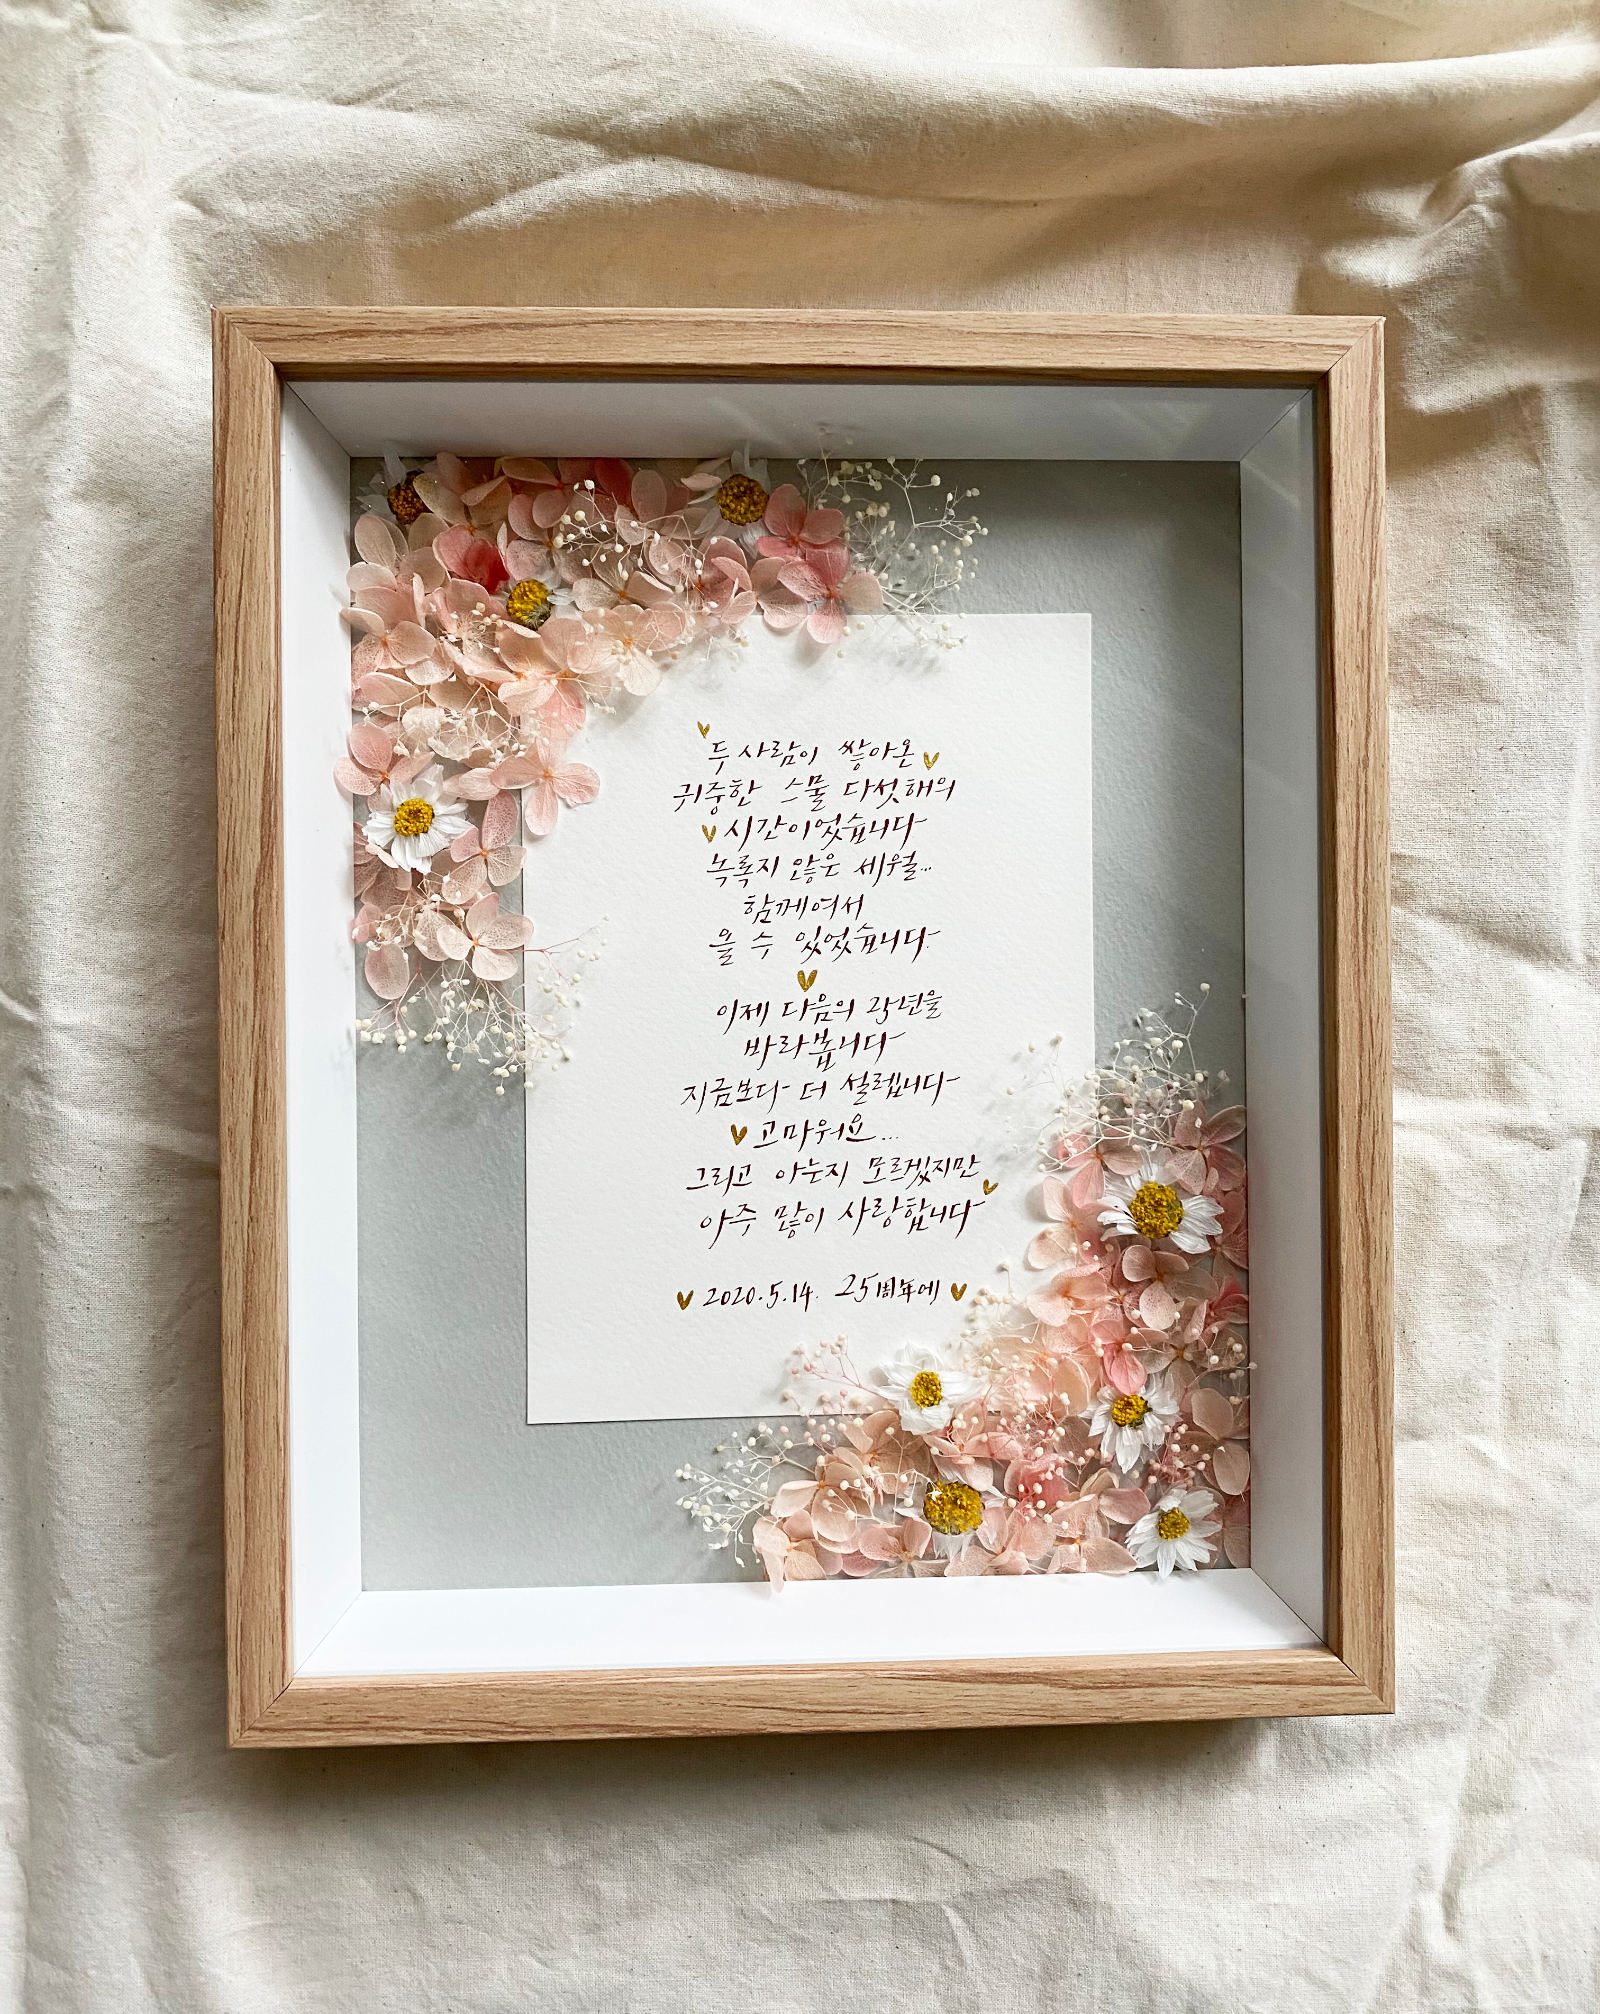 두 사람이 쌓아온
귀중한 스물 다섯해의
시간이었습니다
녹록지 않은 세월...
함께여서
올 수 있었습니다.
이제 다음의 25년을
바라봅니다
지금보다 더 설렙니다
고마워요...
그리고 아는지 모르겠지만
아주 많이 사랑합니다
2020.5.14. 25周年에